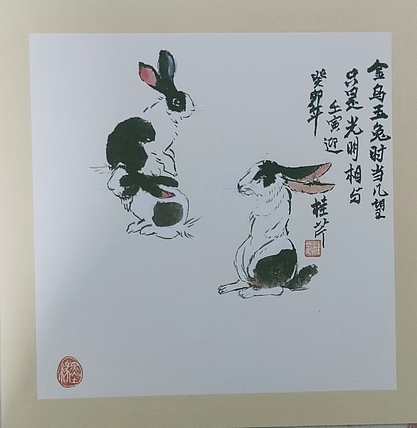 金乌玉兔时当几望
只是光明相与
壬寅迎
癸卯年
桂芹